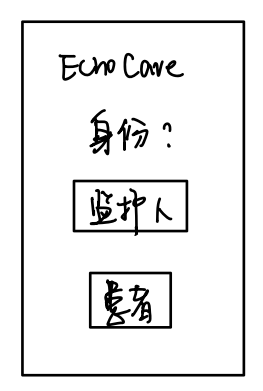 Echo Care
身份?
监护人
患者